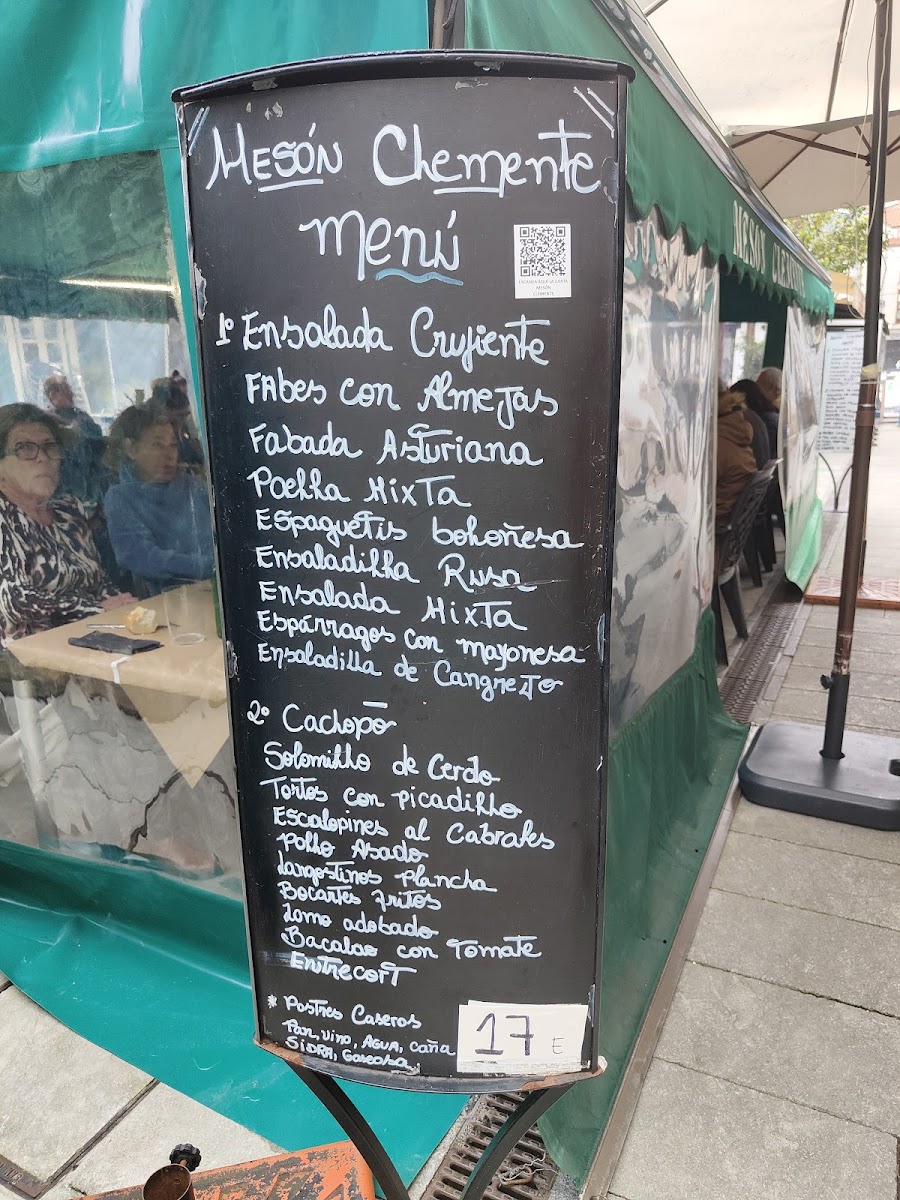 Mesón Clemente
Menú
ESCANEA AQUÍ LA CARTA
MESÓN
CLEMENTE
1º Ensalada Crujiente
FAbes con Almejas
Fabada Asturiana
Paella Mixta
Espaguetis boloñesa
Ensaladilla Rusa
Ensalada Mixta
Espárragos con mayonesa
Ensaladilla de Cangrejo
2º Cachopo
Solomillo de Cerdo
Tortos con picadillo
Escalopines al Cabrales
Pollo Asado
Langostinos plancha
Bocartes fritos
Lomo adobado
Bacalao con Tomate
Entrecort
* Postres Caseros
Pan, vino, AGUA, caña
SiDRA, Gaseosa
17 E
MESON CLEMENTE